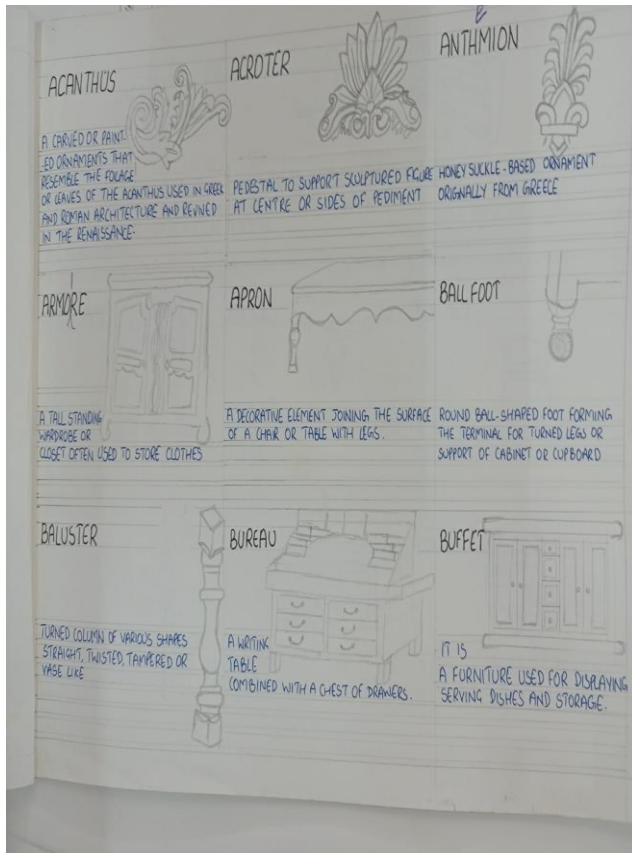 ACANTHUS
A CARVED OR PAINT-
ED ORNAMENTS THAT
RESEMBLE THE FOLAGE
OR LEAVES OF THE ACANTHUS USED IN GREEK
AND ROMAN ARCHITECTURE AND REVINED
IN THE RENAISSANCE.
ACROTER
PEDESTAL TO SUPPORT SCULPTURED FIGURE
AT CENTRE OR SIDES OF PEDIMENT
E
ANTHMION
HONEY SUCKLE-BASED ORNAMENT
ORIGNALLY FROM GREECE
I
ARMORE
A TALL STANDING
WARDROBE OR
CLOSET OFTEN USED TO STORE CLOTHES
APRON
A DECORATIVE ELEMENT JOINING THE SURFACE
OF A CHAIR OR TABLE WITH LEGS.
BALL FOOT
ROUND BALL-SHAPED FOOT FORMING
THE TERMINAL FOR TURNED LEGS OR
SUPPORT OF CABINET OR CUPBOARD
BALUSTER
TURNED COLUMN OF VARIOUS SHAPES
STRAIGHT, TWISTED, TAMPERED OR
VASE LIKE
BUREAU
A WRITING
TABLE
COMBINED WITH A CHEST OF DRAWERS.
BUFFET
IT IS
A FURNITURE USED FOR DISPLAYING
SERVING DISHES AND STORAGE.